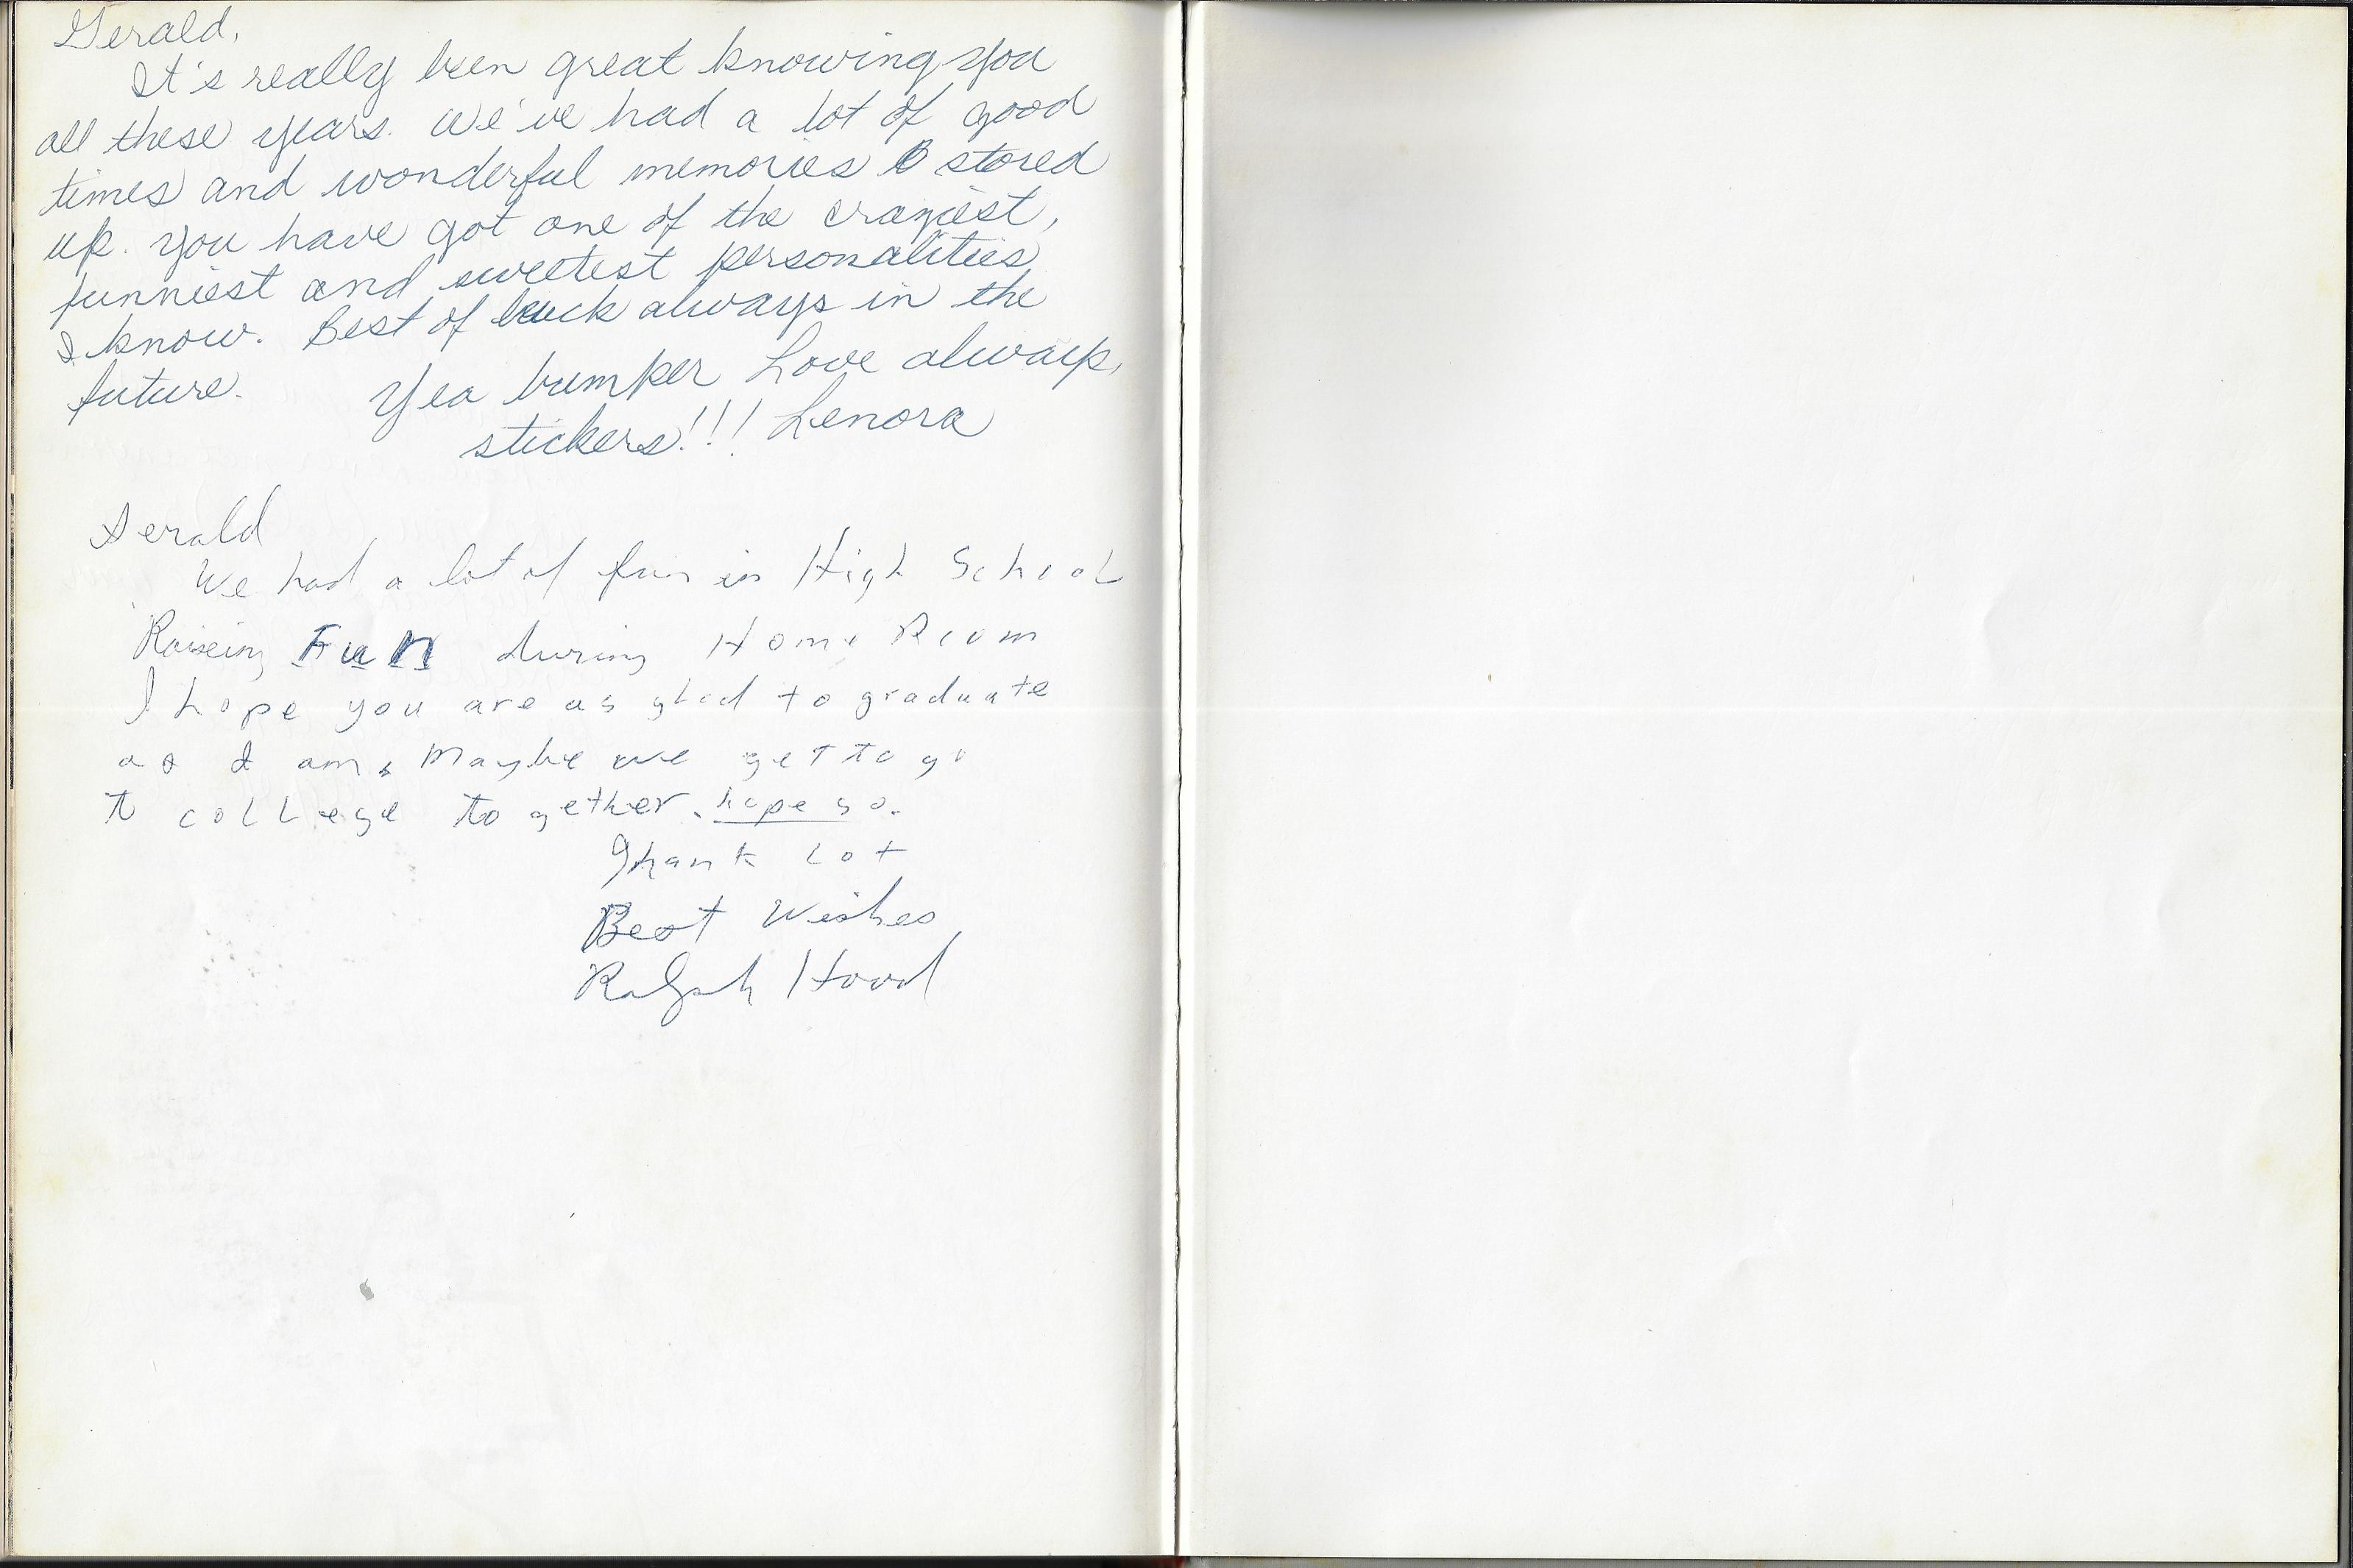 Gerald,
It's really been great knowing you
all these years. We've had a lot of good
times and wonderful memories stored
up. You have got one of the craziest,
funniest and sweetest personalities
I know. Best of luck always in the
future. Yea bumper Love always,
stickers!!! Lenora
Gerald
We had a lot of fun in High School
Raiseing Fun during Home Room
I hope you are as glad to graduate
as I am. Maybe we get to go
to college together. hope so.
Thank Lot
Best Wishes
Ralph Hood